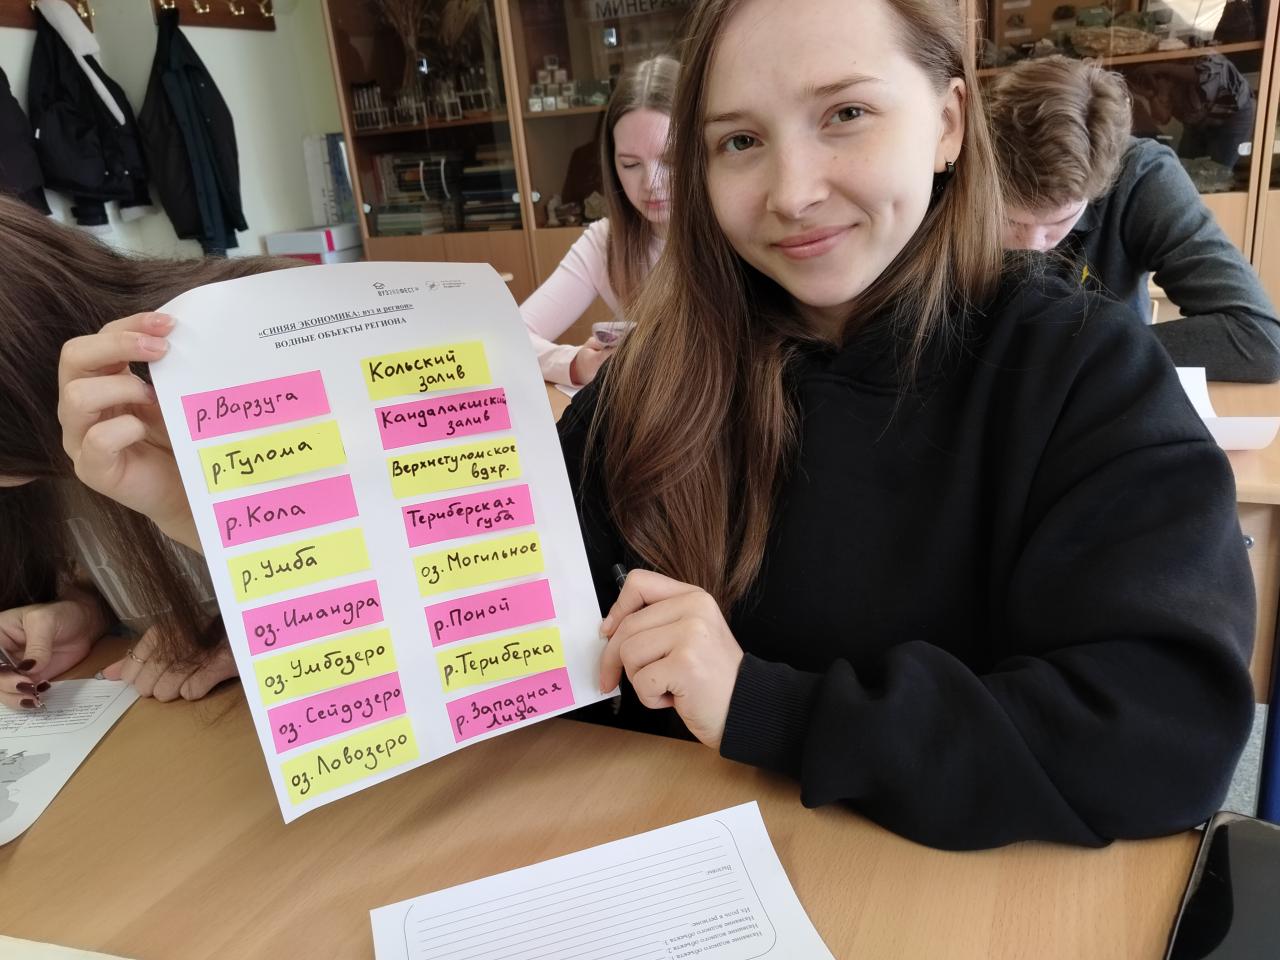 МИНЕРАЛ
ВУЗЭКОФЕСТ
«СИНЯЯ ЭКОНОМИКА: вуз и регион»
ВОДНЫЕ ОБЪЕКТЫ РЕГИОНА
р. Варзуга
р. Тулома
р. Кола
р. Умба
оз. Имандра
оз. Умбозеро
оз. Сейдозеро
оз. Ловозеро
Кольский
залив
Кандалакшский
залив
Верхнетуломское
вдхр.
Териберская
губа
оз. Могильное
р. Поной
р. Териберка
р. Западная
Лица
Название водного объекта 1:
Название водного объекта 2:
Название водного объекта 3:
Их роль в регионе:
Вызовы: